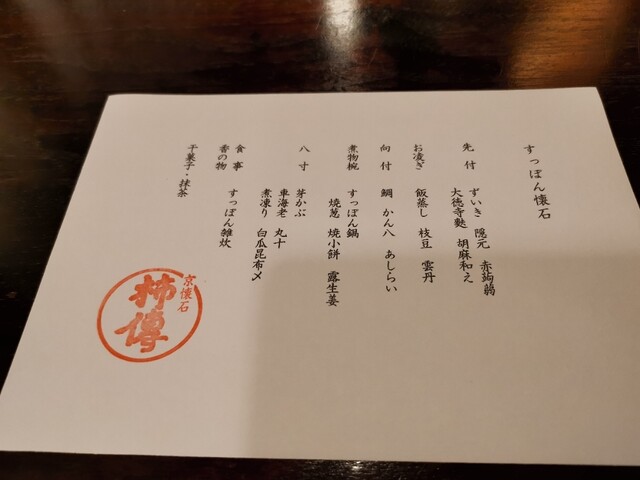 すっぽん懐石
先付 ずいき 隠元 赤蒟蒻
大徳寺麩 胡麻和え
お凌ぎ 飯蒸し 枝豆 雲丹
向付 鯛 かん八 あしらい
煮物椀 すっぽん鍋
焼葱 焼小餅 露生姜
八寸 芽かぶ
車海老 丸十
煮凍り 白瓜昆布〆
食事 すっぽん雑炊
香の物
干菓子・抹茶
京懐石
柿傳